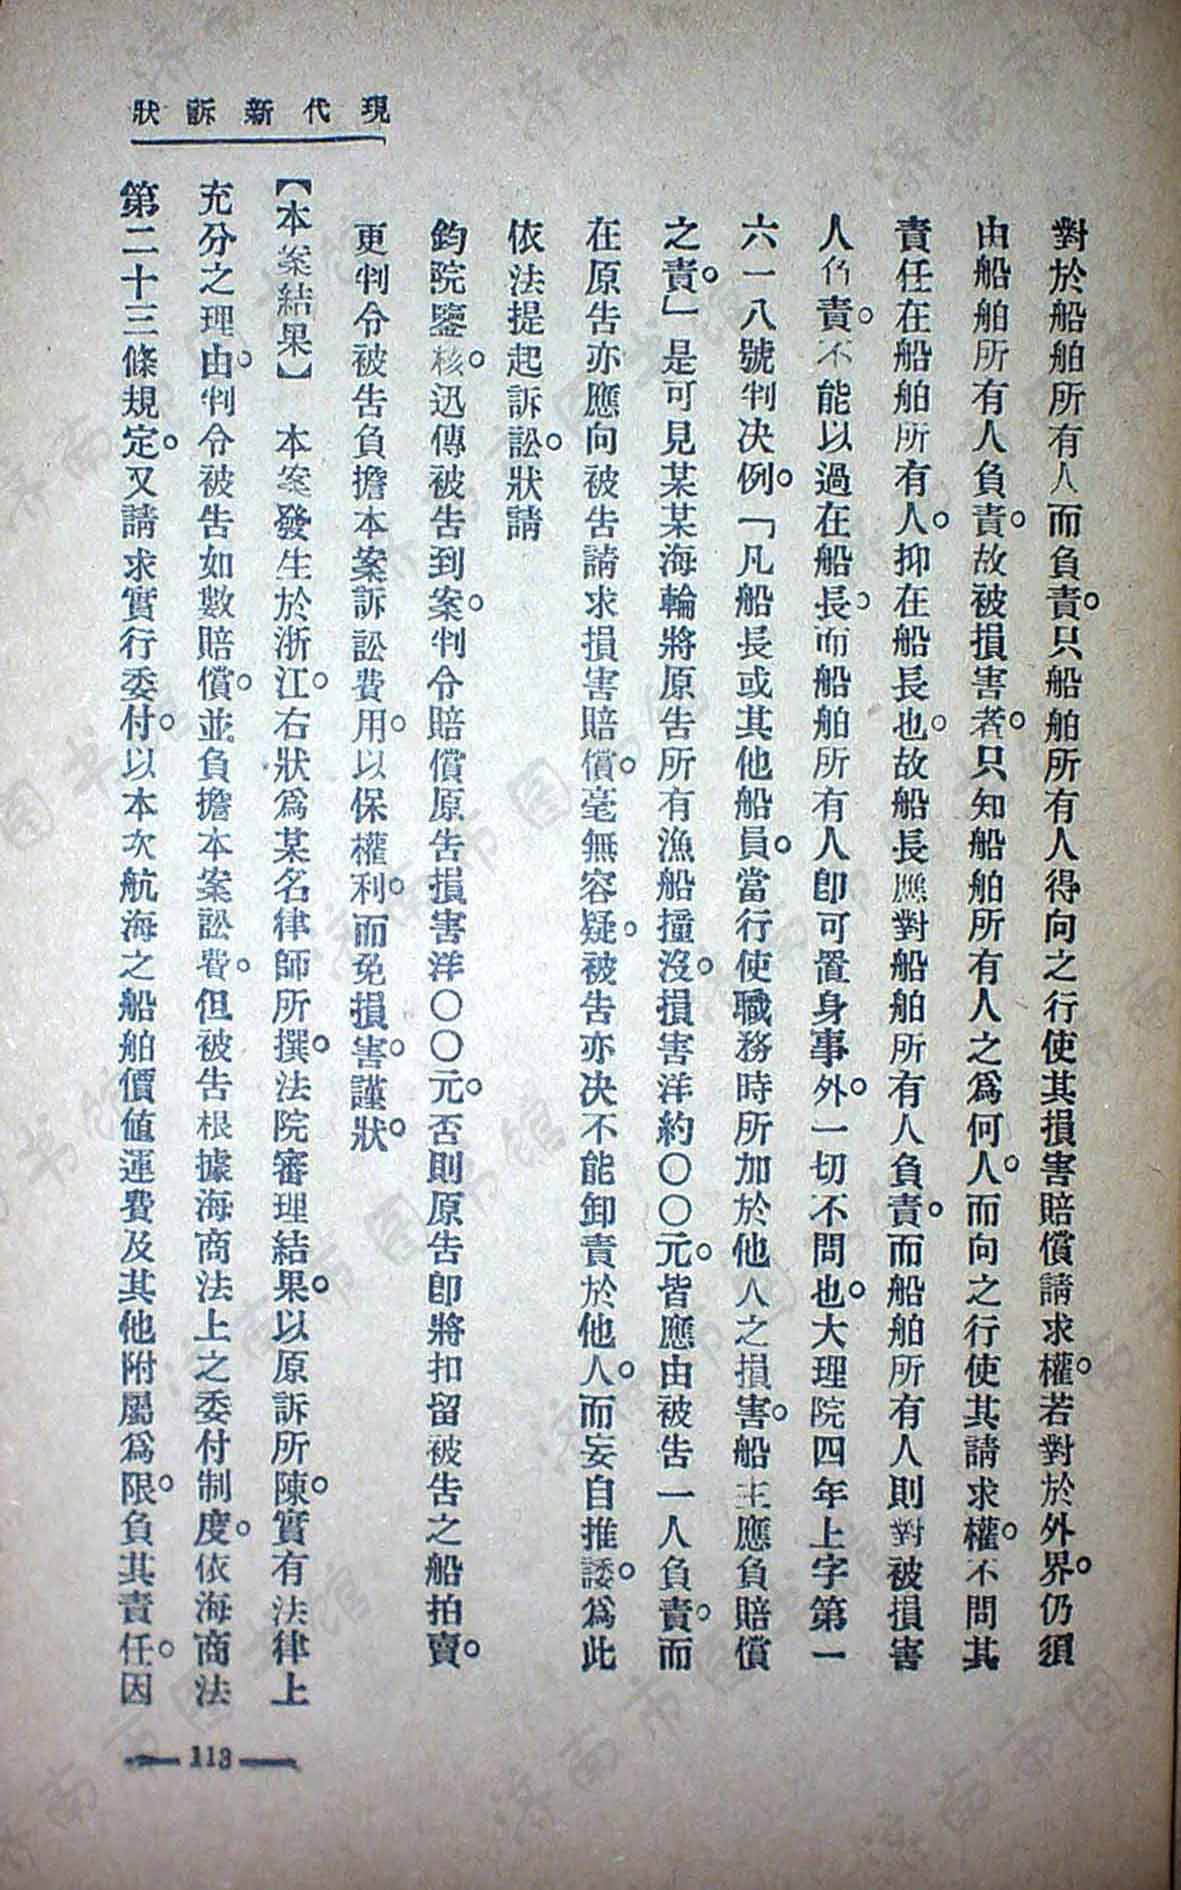 現代新訴狀
對於船舶所有人而負責。只船舶所有人得向之行使其損害賠償請求權。若對於外界。仍須
由船舶所有人負責。故被損害者。只知船舶所有人之爲何人。而向之行使其請求權。不問其
責任在船舶所有人。抑在船長也。故船長應對船舶所有人負責。而船舶所有人則對被損害
人負責。不能以過在船長。而船舶所有人卽可置身事外。一切不問也。大理院四年上字第一
六一八號判決例。「凡船長或其他船員。當行使職務時所加於他人之損害。船主應負賠償
之責。」是可見某某海輪將原告所有漁船撞沒。損害洋約〇〇元。皆應由被告一人負責。而
在原告亦應向被告請求損害賠償。毫無容疑。被告亦決不能卸責於他人。而妄自推諉。爲此
依法提起訴訟。狀請
鈞院鑒核。迅傳被告到案。判令賠償原告損害洋〇〇元。否則原告卽將扣留被告之船拍賣。
更判令被告負擔本案訴訟費用。以保權利。而免損害。謹狀。
【本案結果】 本案發生於浙江。右狀爲某名律師所撰。法院審理結果。以原訴所陳。實有法律上
充分之理由。判令被告如數賠償。並負擔本案訟費。但被告根據海商法上之委付制度。依海商法
第二十三條規定。又請求實行委付。以本次航海之船舶價値運費及其他附屬爲限。負其責任。因
113
济南市图书馆